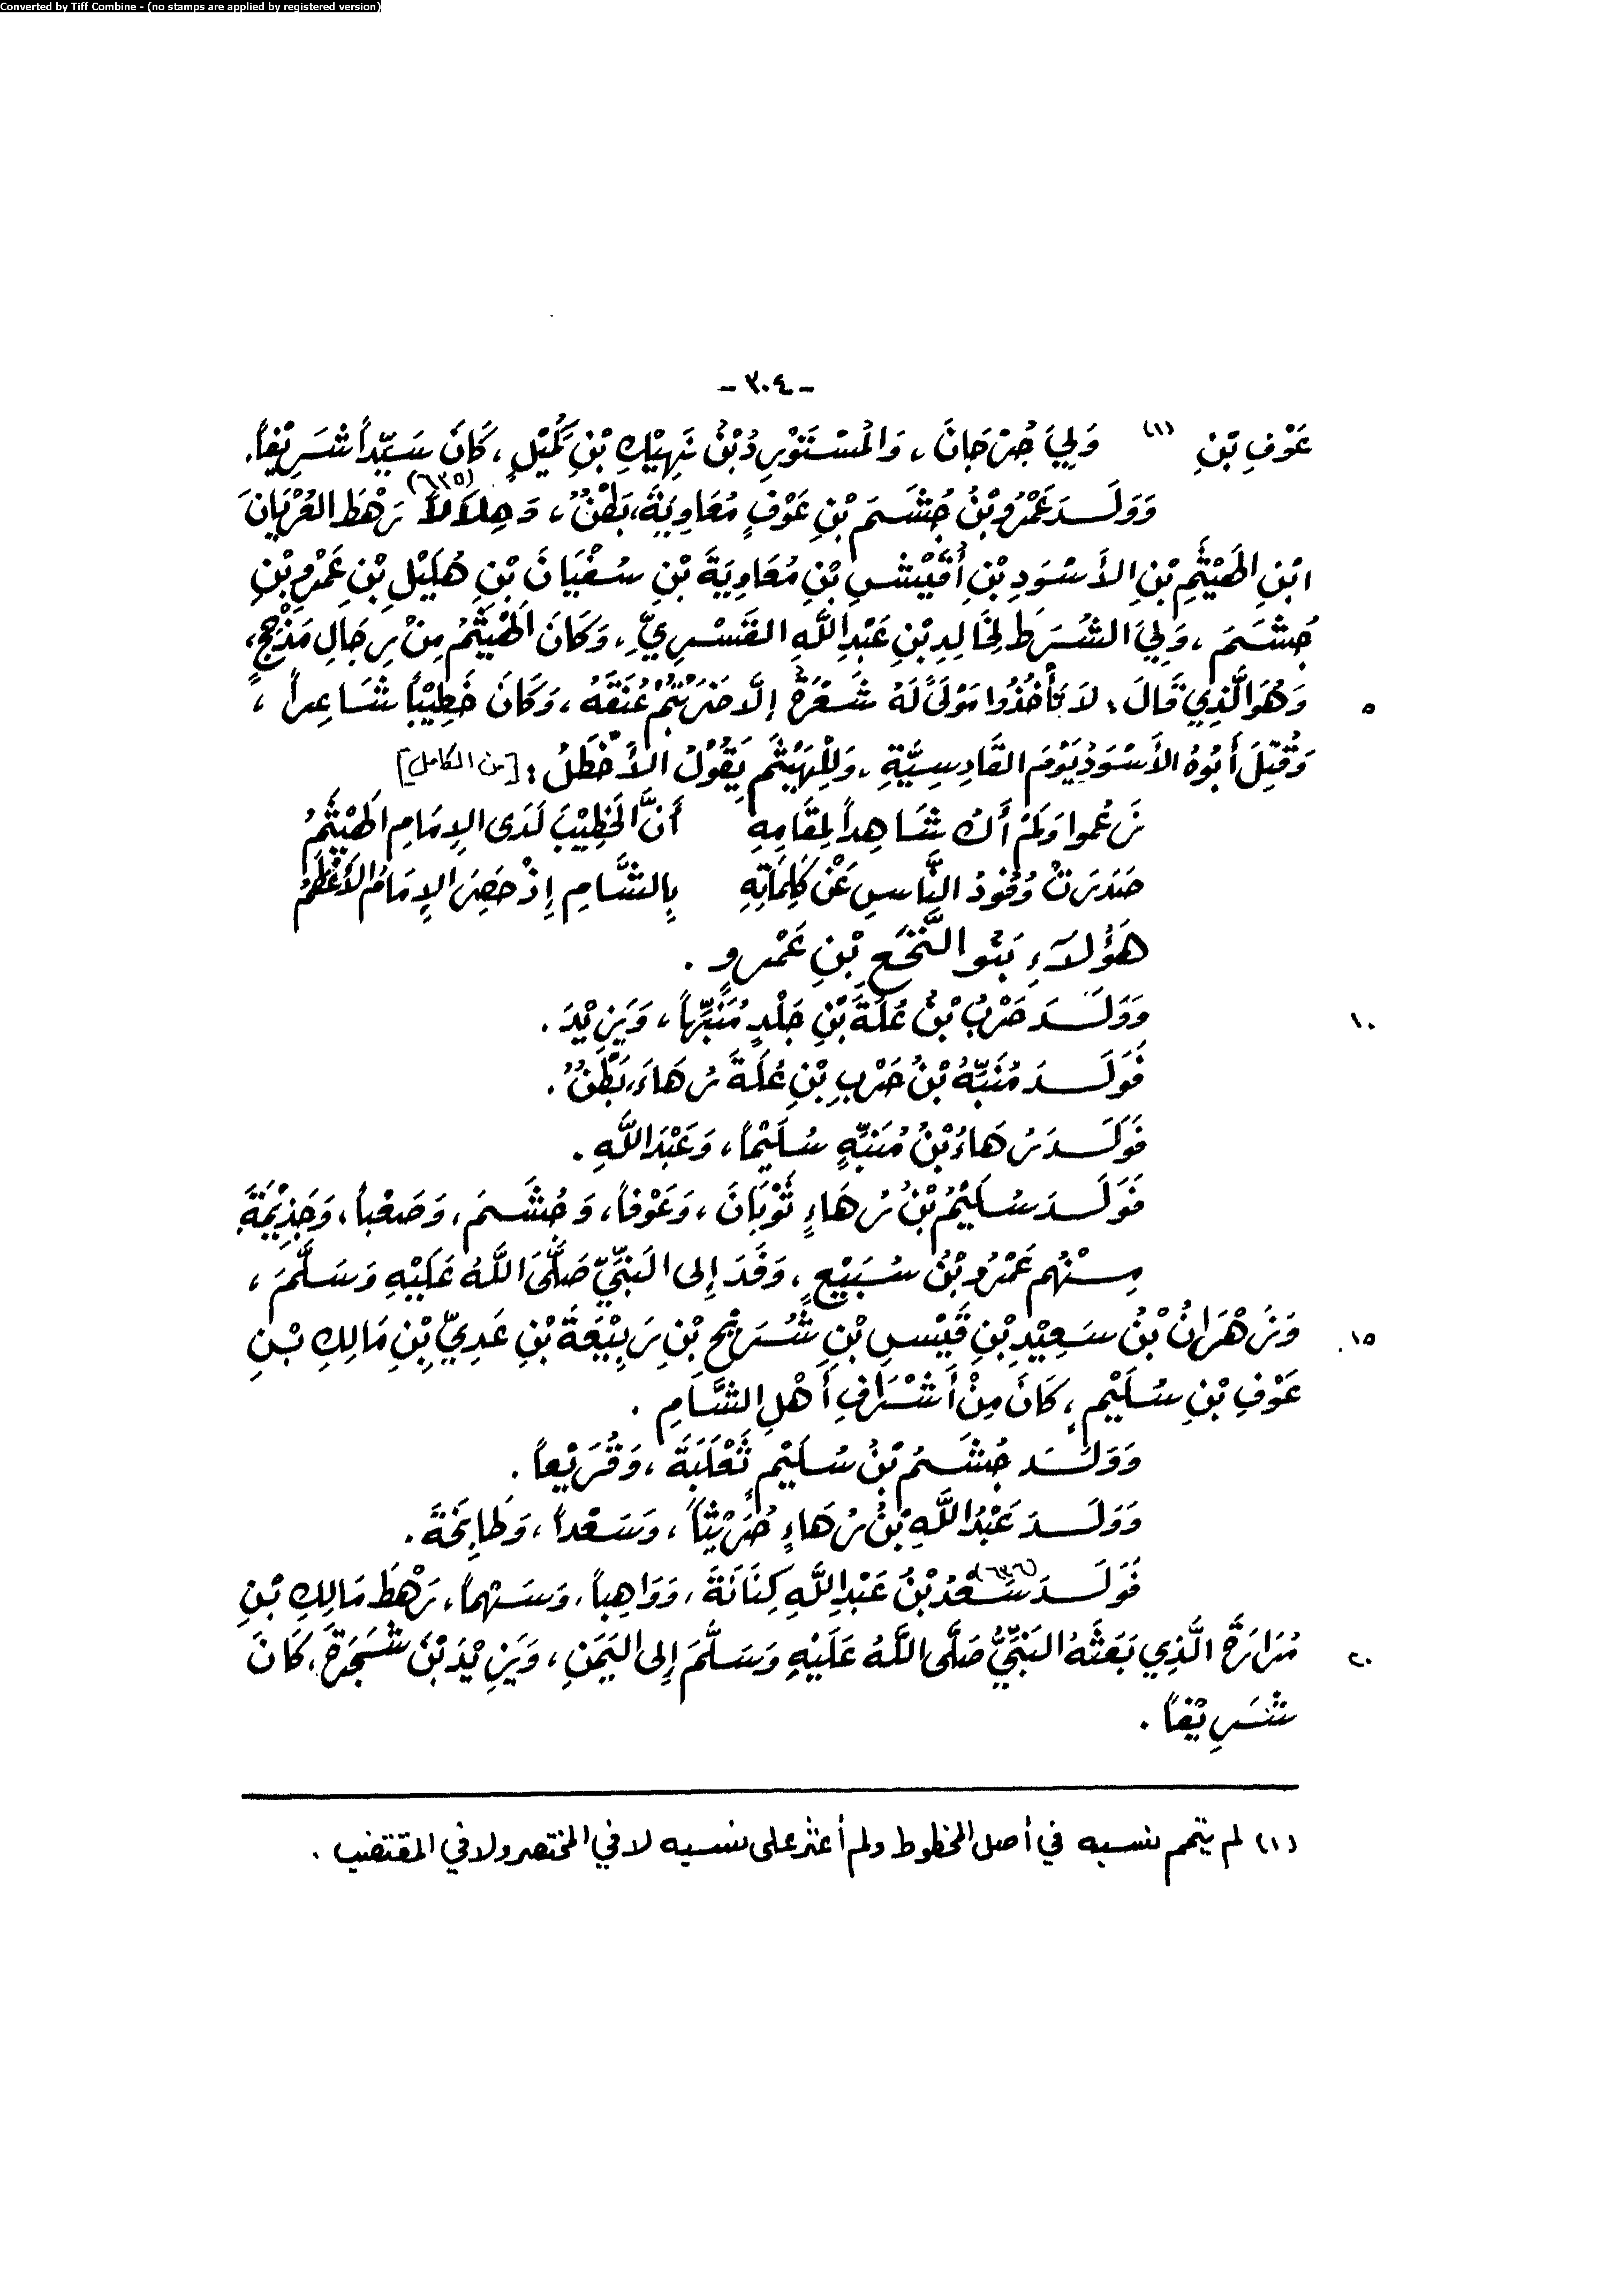 Converted by Tiff Combine - (no stamps are applied by registered version)
- ٣٠٤ -
عَوْفِ بْنِ (١) وَلِيَ جُرْجَانَ، وَالمُسْتَوْرِدُ بْنُ نَهِيْكِ بْنِ كُمَيْلٍ، كَانَ سَيِّداً شَرِيْفاً.
وَوَلَدَ عَمْرُو بْنُ جُشَمَ بْنِ عَوْفٍ مُعَاوِيَةَ، بَطْنٌ، وَهِلَالاً (٦٣٥) رَهْطَ العُرْيَانَ
ابْنِ الهَيْثَمِ بْنِ الأَسْوَدِ بْنِ أُقَيْشِ بْنِ مُعَاوِيَةَ بْنِ سُفْيَانَ بْنِ هُلَيْلِ بْنِ عَمْرِو بْنِ
جُشَمَ، وَلِيَ الشُرَطَ لِخَالِدِ بْنِ عَبْدِاللَّهِ القَسْرِيِّ، وَكَانَ الهَيْثَمُ مِنْ رِجَالِ مَذْحِجٍ،
٥ وَهُوَ الَّذِي قَالَ: لَا تَأْخُذُوا مَوْلَىً لَهُ شَعْرَةٌ إلَّا ضَرَبْتُمْ عُنَقَهُ، وَكَانَ خَطِيْباً شَاعِراً،
وَقُتِلَ أَبُوهُ الأَسْوَدُ يَوْمَ القَادِسِيَّةِ، وَلِلْهَيْثَمِ يَقُوْلُ الأَخْطَلُ: [من الكامل]
زَعُموا وَلَمْ أَكُ شَاهِداً لِمَقَامِهِ أَنَّ الخَطِيْبَ لَدَى الإِمَامِ الهَيْثَمُ
صَدَرَتْ وُفُودُ النَّاسِ عَنْ كَلِمَاتِهِ بِالشَّامِ إِذْ حَضِرَ الإِمَامُ الأَعْظَمُ
هَؤُلَاءِ بَنُو النَّخَعِ بْنِ عَمْرٍو.
١٠ وَوَلَدَ حَرْبُ بْنُ عُلَةَ بْنِ جَلْدٍ مُنَبِّهاً، وَيَزِيْدَ.
فَوَلَدَ مُنَبِّهُ بْنُ حَرْبِ بْنِ عُلَةَ رُهَاءَ، بَطْنٌ.
فَوَلَدَ رُهَاءُ بْنُ مُنَبِّهٍ سُلَيْماً، وَعَبْدَاللَّهِ.
فَوَلَدَ سُلَيْمُ بْنُ رُهَاءٍ ثَوْبَانَ، وَعَوْفاً، وَجُشَمَ، وَصَعْباً، وَجَذِيْمَةَ
مِنْهُم عَمْرُو بْنُ سُبَيْعٍ، وَفَدَ إِلى النَبِيِّ صَلَّى اللَّهُ عَلَيْهِ وَسَلَّمَ،
١٥ وَزَهْرَانُ بْنُ سَعِيْدِ بْنِ قَيْسِ بْنِ شُرَيْحِ بْنِ رَبِيْعَةَ بْنِ عَدِيِّ بْنِ مَالِكِ بْنِ
عَوْفِ بْنِ سُلَيْمٍ، كَانَ مِنْ أَشْرَافِ أَهْلِ الشَّامِ.
وَوَلَدَ جُشَمُ بْنُ سُلَيْمٍ ثَعْلَبَةَ، وَقُرَيْعاً.
وَوَلَدَ عَبْدُاللَّهِ بْنُ رُهَاءٍ حُرَيْثاً، وَسَعْداً، وَطَابِخَةَ.
فَوَلَدَ سَعْدُ (٦٣٦) بْنُ عَبْدِاللَّهِ كِنَانَةَ، وَوَاهِباً، وَسَهْماً، رَهْطَ مَالِكِ بْنِ
٢٠ مُرَارَةَ الَّذِي بَعَثَهُ النَبِيُّ صَلَّى اللَّهُ عَلَيْهِ وَسَلَّمَ إِلى اليَمَنِ، وَيَزِيْدَ بْنَ شَجَرَةَ، كَانَ
شَرِيْفاً.
(١) لم يتمم نسبه في أصل المخطوط ولم أعثر على نسبه لا في المختصر ولا في المقتضب.